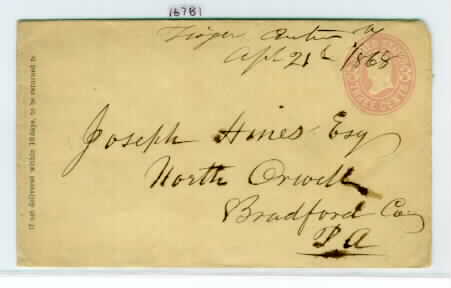 16781
Apl 21st 1868
THREE CENTS
Joseph Hines Esq
North Orwell
Bradford Co
PA
If not delivered within 10 days, to be returned to